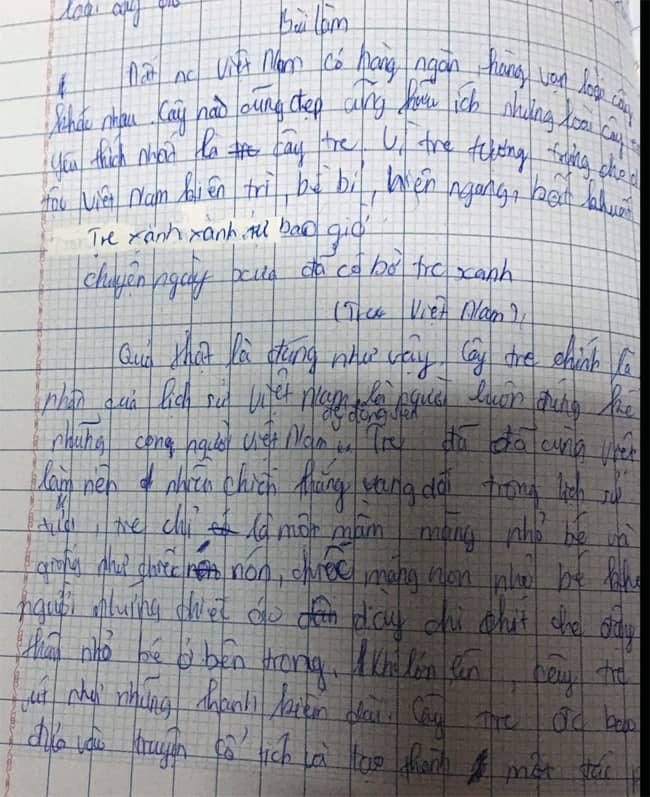 loài cây
Bài làm
Đất nc Việt Nam có hàng ngàn hàng vạn loài cây
khác nhau. Cây nào cũng đẹp cũng hữu ích nhưng loài cây
yêu thích nhất là cây tre. Vì tre tượng trưng cho d
tộc Việt Nam kiên trì, bề bỉ, hiên ngang, bất khuất
Tre xanh xanh tự bao giờ
chuyện ngày xưa đã có bờ tre xanh
(Tre Việt Nam),
Quả thật là đúng như vậy. Cây tre chính là
nhân quả lịch sử Việt Nam, là người luôn đứng
những công người Việt Nam Tre đã đã cùng Việt
làm nên nhiên chiến thắng vang dội trong lịch sử
tre chỉ là một mầm măng nhỏ bé
giống như chiếc nón, chiếc măng non nhỏ bé
người nhưng chiết áo dày chi chít che đậy
thân nhỏ bé ở bên trong. Khi lớn lên, cây tre
vút như những thanh kiếm dài. Cây tre đc
vào truyện cổ tích và tạo thành một tác